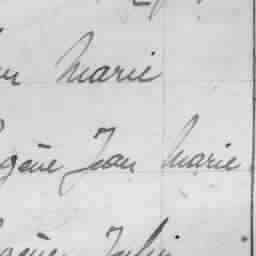 Marie
gène Jean Marie
gène Julien